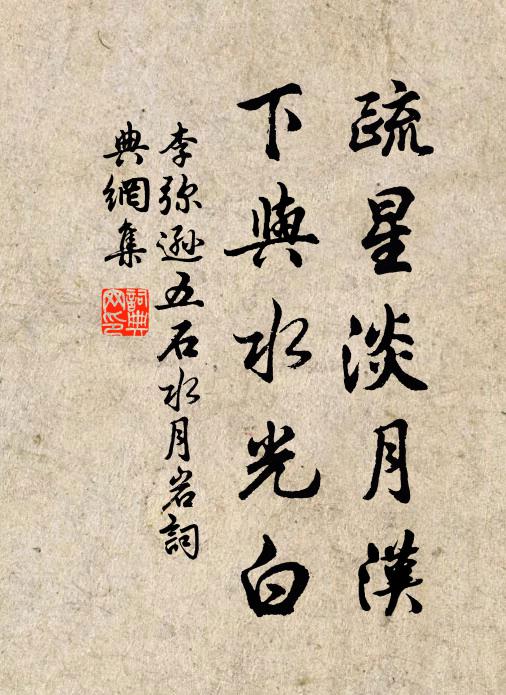 疏星淡月漢
下與水光白
李弥遜五石水月岩詞
典網集
詞典
网印